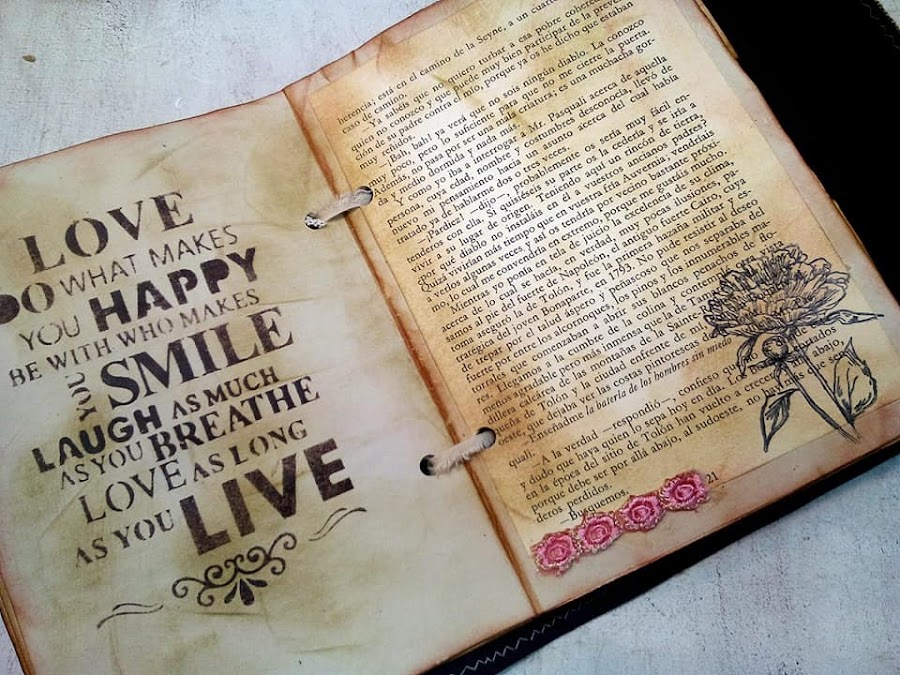 LOVE
DO WHAT MAKES
YOU HAPPY
BE WITH WHO MAKES
YOU SMILE
LAUGH AS MUCH
AS YOU BREATHE
LOVE AS LONG
AS YOU LIVE
herencia; está en el camino de la Seyne, a un cuarto
caso de camino.
—Ya sabéis que no quiero turbar a esa pobre coheredera
quien no conozco y que puede muy bien participar de la preven-
ción de su padre contra el mío, porque ya os he dicho que estaban
muy reñidos.
—¡Bah, bah! ya verá que no sois ningún diablo. La conozco
muy poco, pero lo suficiente para que no me cierre la puerta.
Además, no pasa por ser una mala criatura; es una muchacha gor-
da y medio dormida y nada más.
Y como yo iba a interrogar a Mr. Pasquali acerca de aquella
persona cuya edad, nombre y costumbres desconocía, llevó de
nuevo mi pensamiento hacia el asunto acerca del cual había
tratado ya de hablarme dos o tres veces.
—¡Pardiez! —dijo—, probablemente os sería muy fácil en-
tenderos con ella. Si quisiérais su parte os la cedería y se iría a
vivir a su lugar de origen. Teniendo aquí un rincón de tierra,
por qué diablo os instaláis en él a vuestros ancianos padres
Quizá vivirían más tiempo que en vuestra fría Auvernia; vendríais
a verlos algunas veces y así os tendría por vecino bastante próxi-
mo, lo cual me convendría en extremo, porque me gustáis mucho.
Mientras yo ponía en tela de juicio la excelencia de su clima,
acerca de lo cual se hacía, en verdad, muy pocas ilusiones, pa-
samos al pie del fuerte de Napoleón, el antiguo fuerte Cairo, cuya
toma aseguró la de Tolón, y fue la primera hazaña militar y es-
tratégica del joven Bonaparte, en 1793. No pude resistir al deseo
de trepar por el talud áspero y peñascoso que nos separaba del
fuerte por entre los alcornoques, los pinos y los innumerables ma-
torrales que comenzaban a abrir sus blancos penachos de flo-
res. Llegamos a la cumbre de la colina y contemplé
menos agradable pero más inmensa que la de Tamaris
dillera calcárea de las montañas de Sainte-
queña de Tolón y la ciudad enfrente de mí
oeste, que dejaba ver las costas pintorescas
—Enseñadme la batería de los hombres sin miedo
quali.
—A la verdad —respondió—, confieso que
y dudo que haya quien lo sepa hoy en día. Los
en la época del sitio de Tolón han vuelto a crecer
porque debe ser por allá abajo, al sudoeste, no
deros perdidos.
—Busquemos.